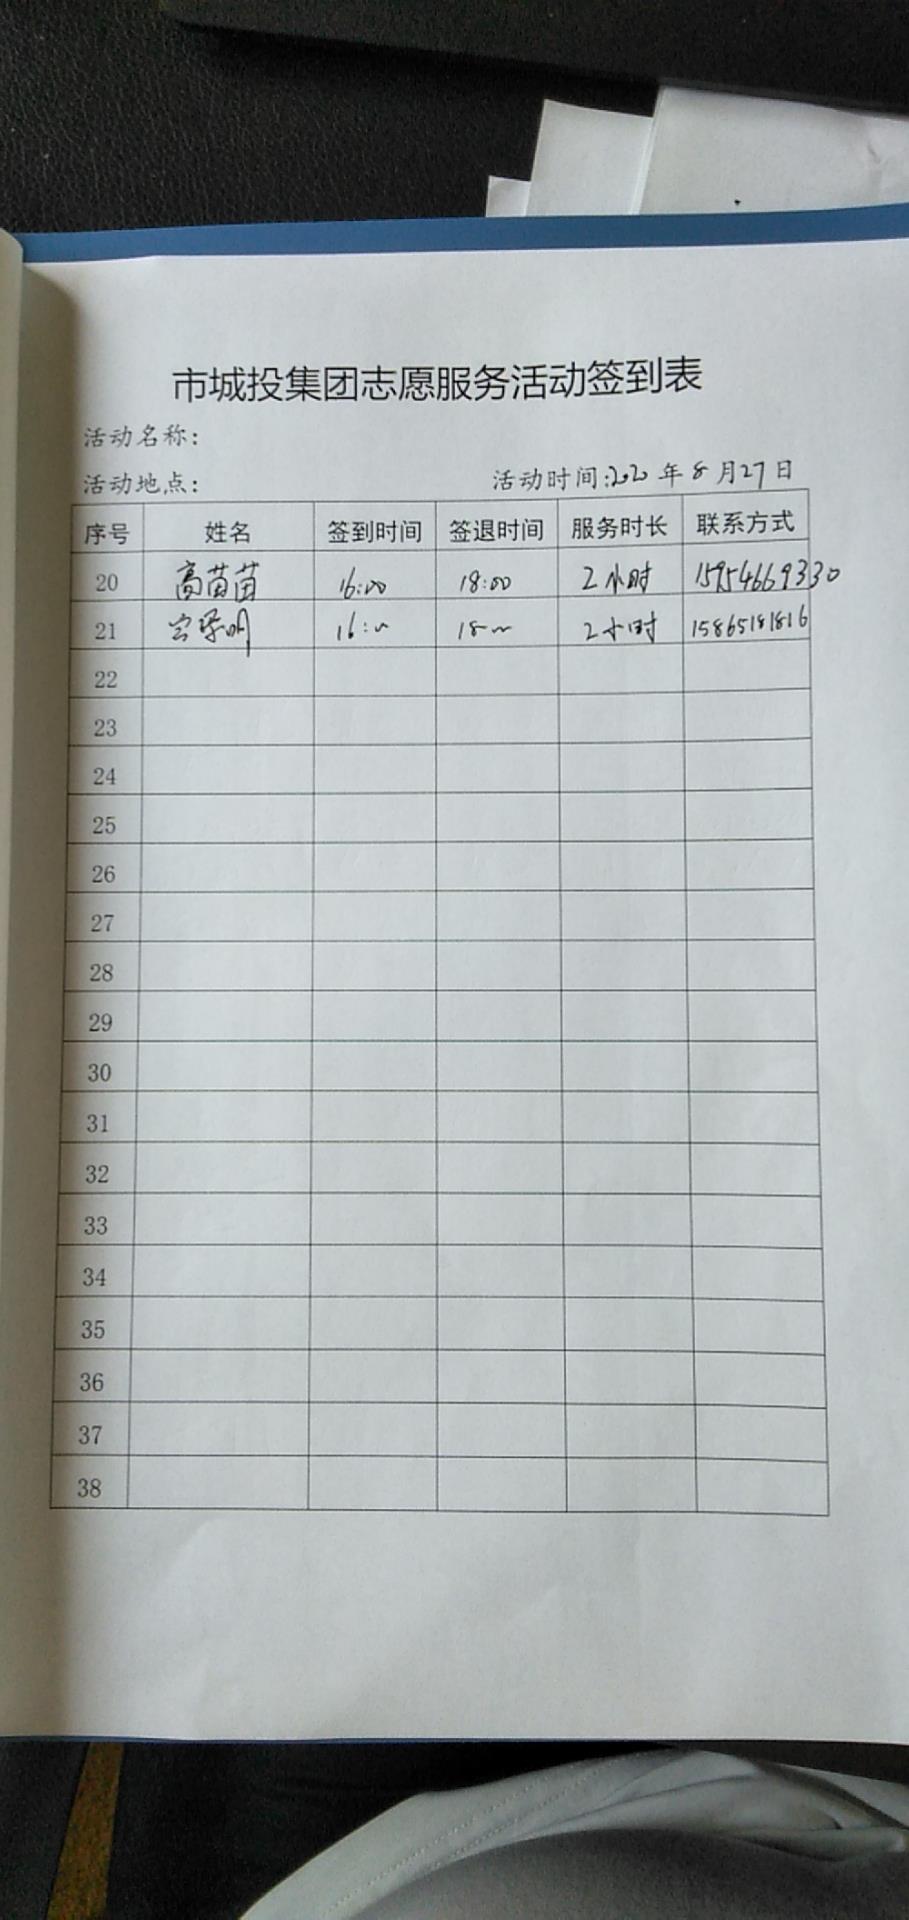 市城投集团志愿服务活动签到表
活动名称:
活动地点: 活动时间:2020年8月27日
序号 姓名 签到时间 签退时间 服务时长 联系方式
20 高苗苗 16:00 18:00 2小时 15954669330
21 16: 18 2小时 15865181816
22
23
24
25
26
27
28
29
30
31
32
33
34
35
36
37
38